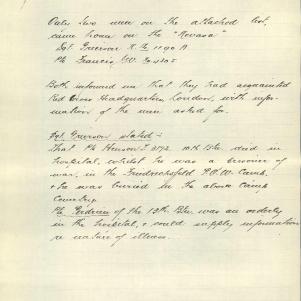 Only two men on the attached list
came home on the "Nevasa"
Sgt. Grierson R.
Pte Francis W.
Both informed me that they had acquainted
Red Cross Headquarters, London, with infor-
mation of the men asked for.
Sgt. Grierson stated:-
That Pte Henson J. 10th Btn. died in
hospital, whilst he was a prisoner of
war, in the Friedrichsfeld P.O.W. Camp.
& he was buried in the above Camp
Cemetery.
Pte of the 13th Btn. was an orderly
in the hospital, & could supply information
re nature of illness.